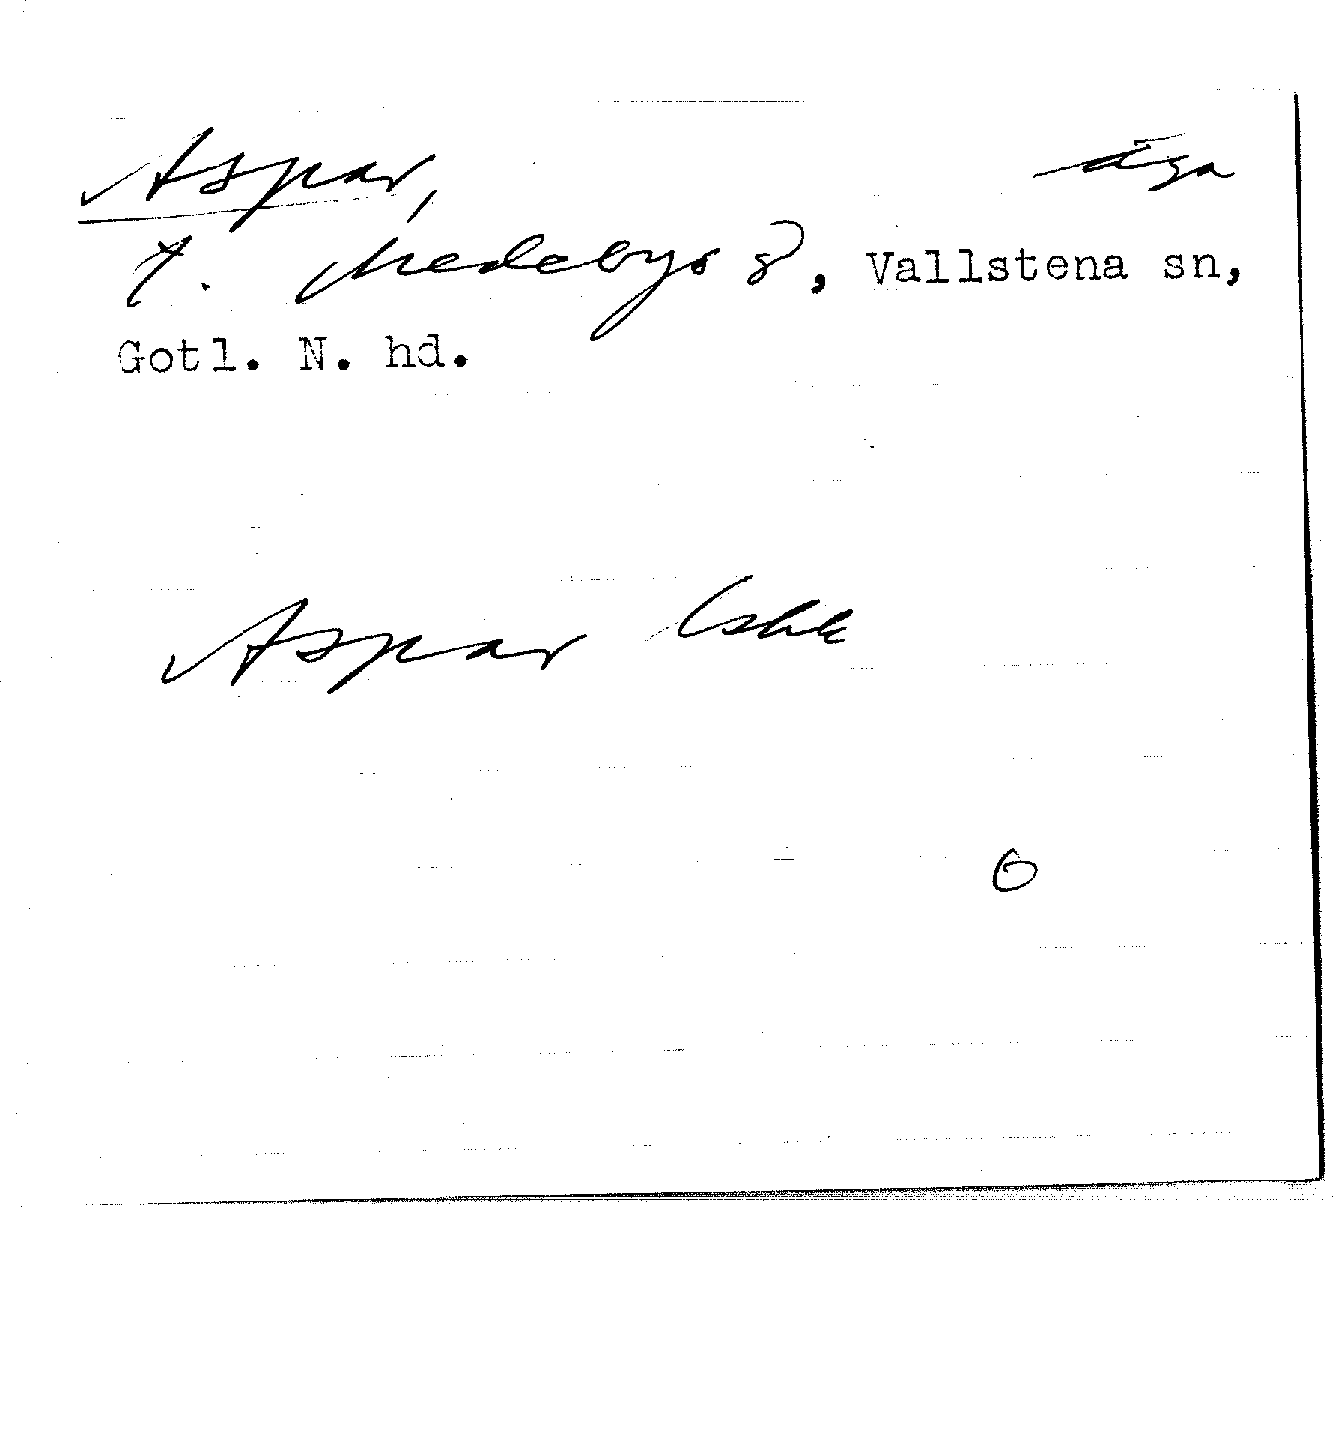 Aspar, äga
t. Medebys 8, Vallstena sn,
Gotl. N. hd.
Aspar